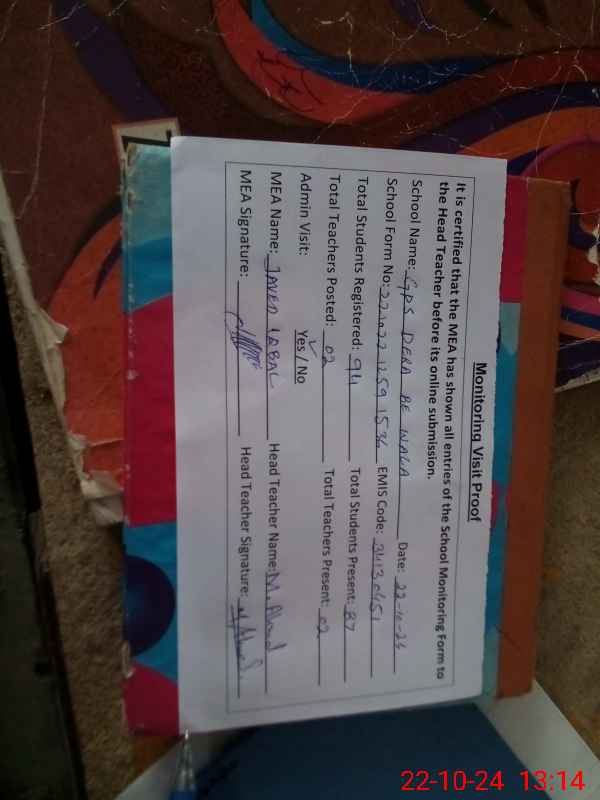 Monitoring Visit Proof
It is certified that the MEA has shown all entries of the School Monitoring Form to
the Head Teacher before its online submission.
School Name: GPS DERA BE WALA Date: 22-10-24
School Form No: EMIS Code: 34130451
Total Students Registered: 94 Total Students Present: 87
Total Teachers Posted: 02 Total Teachers Present: 02
Admin Visit: Yes / No
MEA Name: JAVED IQBAL Head Teacher Name: M.
MEA Signature: Head Teacher Signature:
22-10-24 13:14